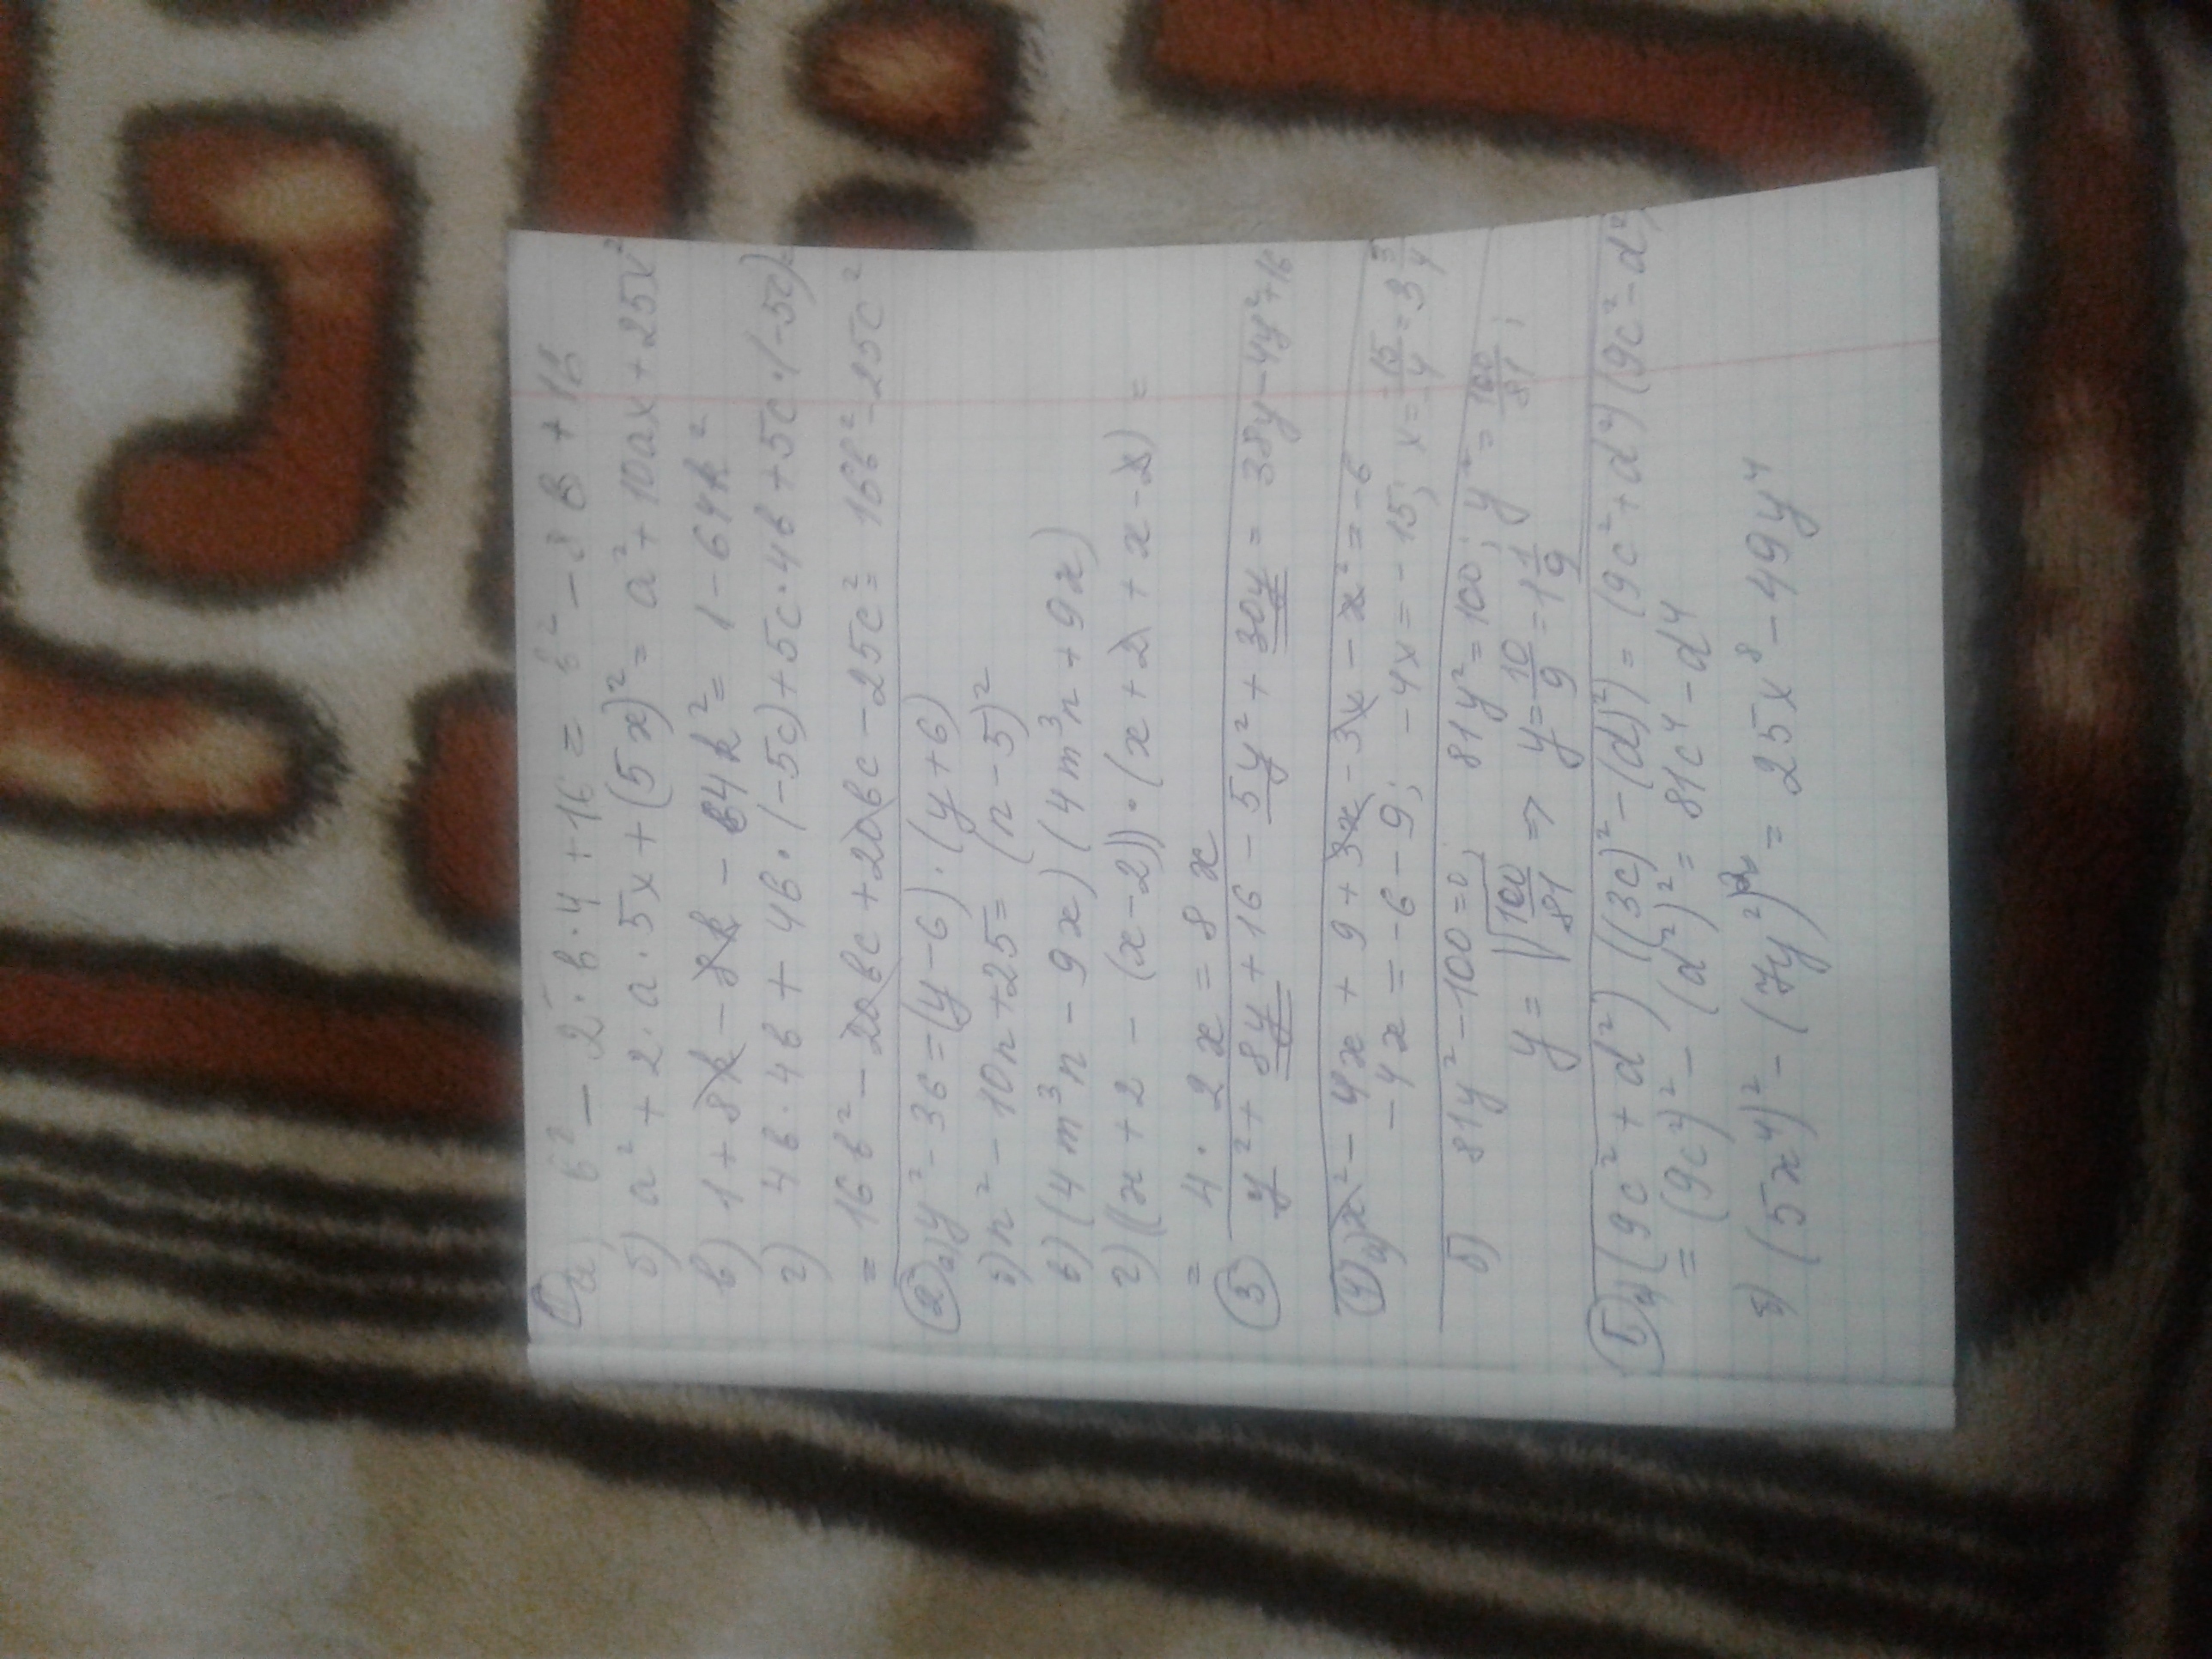 ① а) b² - 2·b·4 + 16 = b² - 8b + 16
б) a² + 2·a·5x + (5x)² = a² + 10ax + 25x²
в) 1 + 8k - 8k - 64k² = 1 - 64k²
г) 4b·4b + 4b·(-5c) + 5c·4b + 5c·(-5c) =
= 16b² - 20bc + 20bc - 25c² = 16b² - 25c²
② а) y² - 36 = (y - 6)·(y + 6)
б) n² - 10n + 25 = (n - 5)²
в) (4m³n - 9x)(4m³n + 9x)
г) ((x + 2 - (x - 2))·(x + 2 + x - 2) =
= 4·2x = 8x
③ y² + 8y + 16 - 5y² + 30y = 38y - 4y² + 16
④ а) x² - 4x + 9 + 3x - 3x - x² = -6
-4x = -6 - 9; -4x = -15; x = 15/4 = 3 3/4
б) 81y² - 100 = 0; 81y² = 100; y² = 100/81;
y = √100/81 => y = 10/9 = 1 1/9
⑤ а) (9c² + d²)((3c)² - (d)²) = (9c² + d²)(9c² - d²)
= (9c²)² - (d²)² = 81c⁴ - d⁴
б) (5x⁴)² - (7y²)² = 25x⁸ - 49y⁴